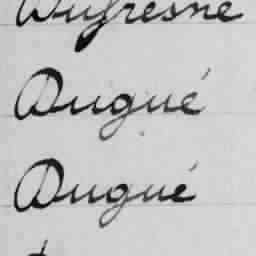 Dufresne
Dugué
Dugué